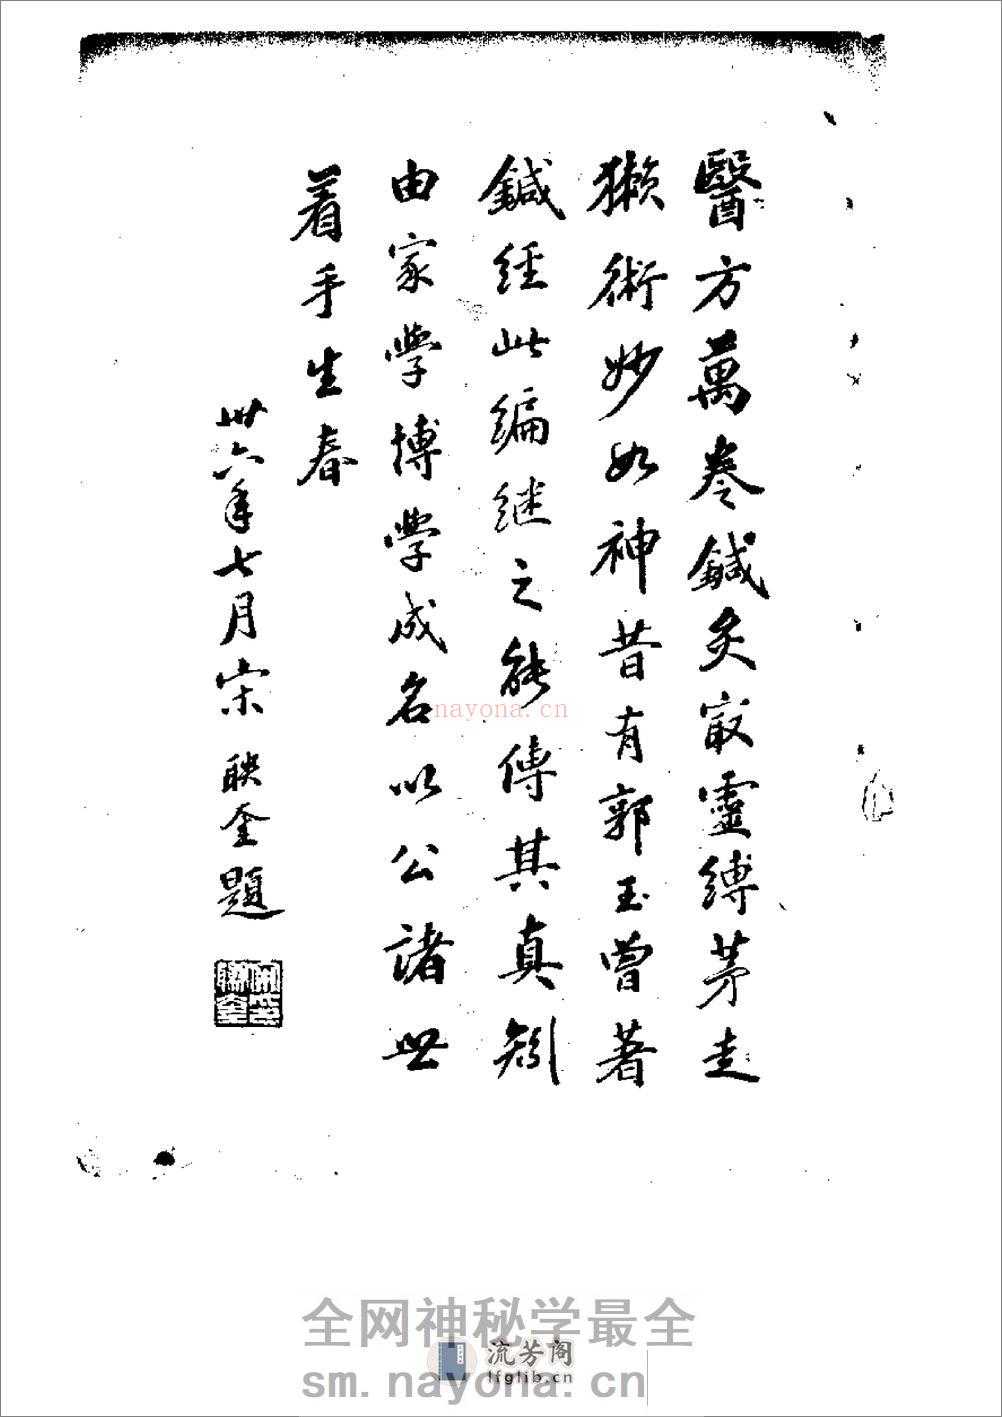 醫方萬卷鍼灸最靈縛茅走
獺術妙如神昔有郭玉曾著
鍼经此编继之能傳其真矧
由家學博學成名以公諸世
着手生春
卅六年七月宗映奎題
nayona.cn
全网神秘学最全
流芳阁
lfglib.cn
sm.nayona.cn